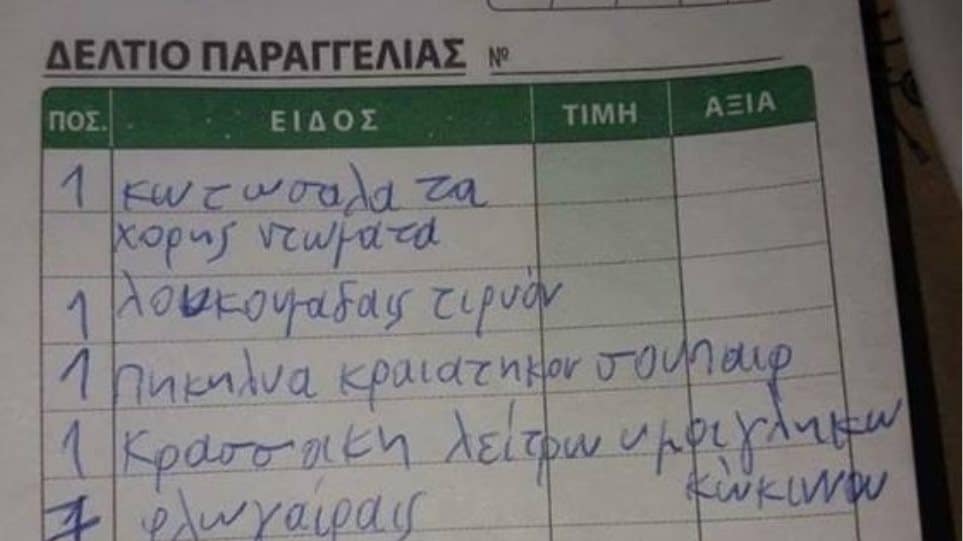 ΔΕΛΤΙΟ ΠΑΡΑΓΓΕΛΙΑΣ Νº
ΠΟΣ. ΕΙΔΟΣ ΤΙΜΗ ΑΞΙΑ
1 κωτωσαλατα
χορης ντωματα
1 λουκουμαδαις τιρυόν
1 πηκηλυα κραιατηκον σουπαιρ
1 κρασσακη λείτρω ημιγληκω
κώκινου
1 φλωγαίραις